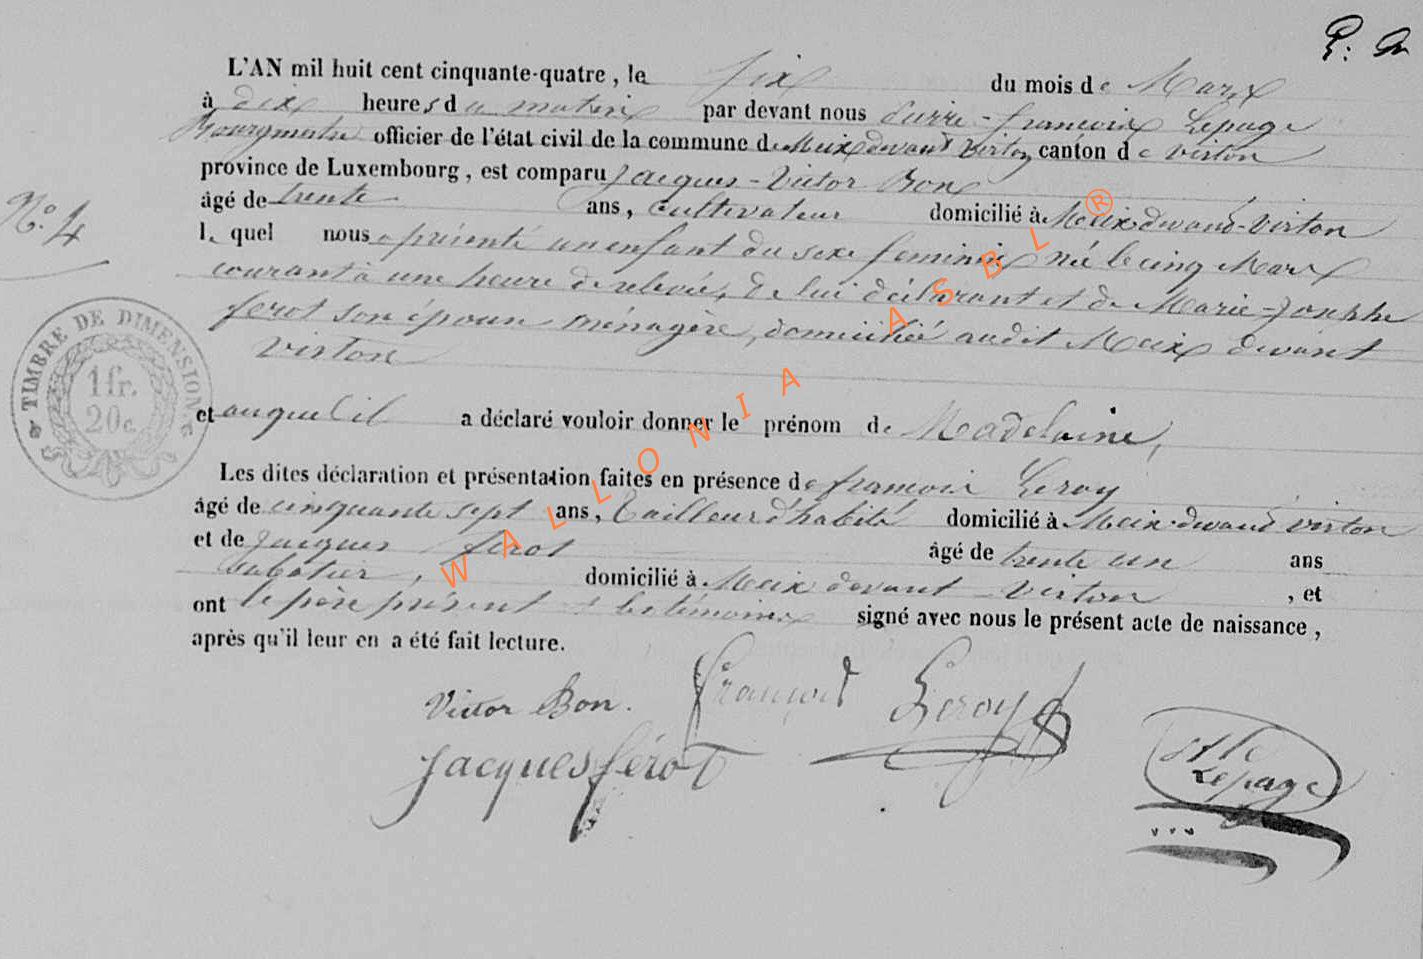 P. Ch
L'AN mil huit cent cinquante-quatre, le six du mois de Mars
à dix heures du matin par devant nous Pierre-françois Lepage
Bourgmestre officier de l'état civil de la commune de Meix devant Virton, canton de Virton
province de Luxembourg, est comparu Jacques-Victor Bon
âgé de trente ans, cultivateur domicilié à Meix-devant-Virton
lequel nous a présenté un enfant du sexe feminin né le cinq Mars
courant à une heure de relevée, de lui déclarant et de Marie-Josephe
ferot son épouse ménagère, domiciliée audit Meix devant
Virton
N° 4
TIMBRE DE DIMENSION
1 fr.
20 c.
et auquel il a déclaré vouloir donner le prénom de Madelaine,
Les dites déclaration et présentation faites en présence de françois Leroy
âgé de cinquante sept ans, tailleur d'habits domicilié à Meix-devant Virton
et de Jacques ferot âgé de trente un ans
Sabotier, domicilié à Meix devant - Virton, et
ont le père présent et les témoins signé avec nous le présent acte de naissance,
après qu'il leur en a été fait lecture.
Victor Bon. François Leroy
Jacques férot
Lepage
WALLONIA ASBL ®